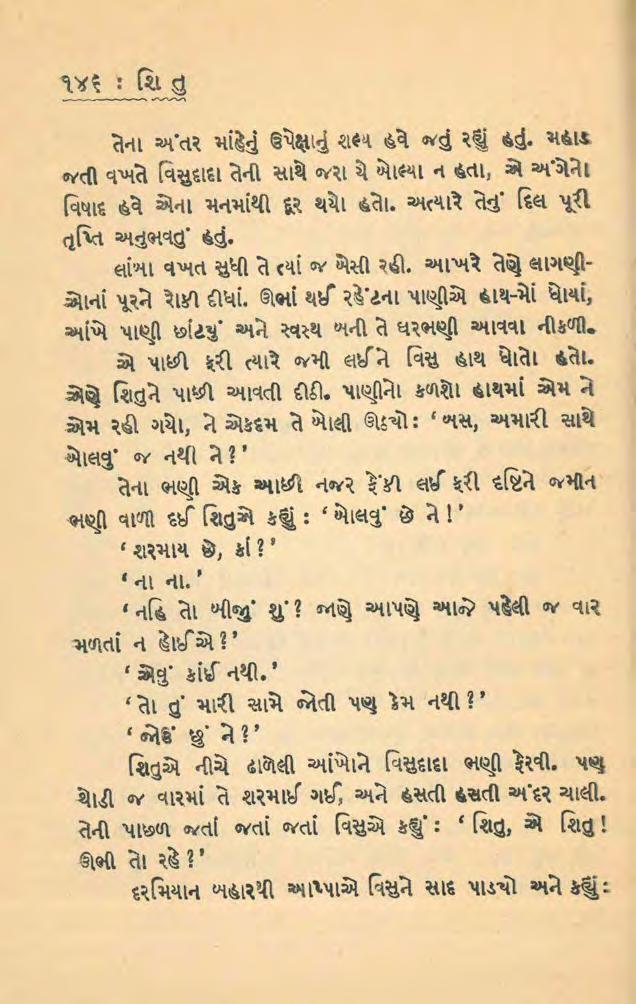 ૧૪૬ : શિ તુ
તેના અંતર માંહેનું ઉપેક્ષાનું શલ્ય હવે જતું રહ્યું હતું. મહાડ
જતી વખતે વિસુદાદા તેની સાથે જરા યે બોલ્યા ન હતા, એ અંગેનો
વિષાદ હવે એના મનમાંથી દૂર થયો હતો. અત્યારે તેનું દિલ પૂરી
તૃપ્તિ અનુભવતું હતું.
લાંબા વખત સુધી તે ત્યાં જ બેસી રહી. આખરે તેણે લાગણી-
ઓનાં પૂરને રોકી દીધાં. ઊભાં થઈ રહેંટના પાણીએ હાથ-મોં ધોયાં,
આંખે પાણી છાંટયું અને સ્વસ્થ બની તે ઘરભણી આવવા નીકળી.
એ પાછી ફરી ત્યારે જમી લઈને વિસુ હાથ ધોતો હતો.
એણે શિતુને પાછી આવતી દીઠી. પાણીનો કળશો હાથમાં એમ ને
એમ રહી ગયો, ને એકદમ તે બોલી ઊઠયો: ‘બસ, અમારી સાથે
બોલવું જ નથી ને?’
તેના ભણી એક આછી નજર ફેંકી લઈ ફરી દૃષ્ટિને જમીન
ભણી વાળી દઈ શિતુએ કહ્યું : ‘બોલવું છે ને!’
‘શરમાય છે, કાં?’
‘ના ના.’
‘નહિ તો બીજું શું? જાણે આપણે આજે પહેલી જ વાર
મળતાં ન હોઈએ?’
‘એવું કાંઈ નથી.’
‘તો તું મારી સામે જોતી પણ કેમ નથી?’
‘જોઉં છું ને?’
શિતુએ નીચે ઢાળેલી આંખોને વિસુદાદા ભણી ફેરવી. પણ
થોડી જ વારમાં તે શરમાઈ ગઈ, અને હસતી હસતી અંદર ચાલી.
તેની પાછળ જતાં જતાં જતાં વિસુએ કહ્યું: ‘શિતુ, એ શિતુ!
ઊભી તો રહે?’
દરમિયાન બહારથી આપ્પાએ વિસુને સાદ પાડયો અને કહ્યું: